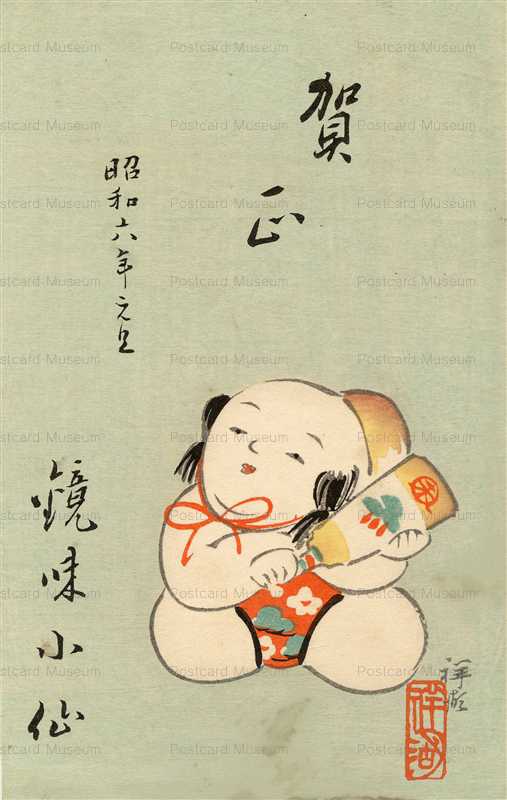 賀正
昭和六年元旦
鏡味小仙
Postcard Museum